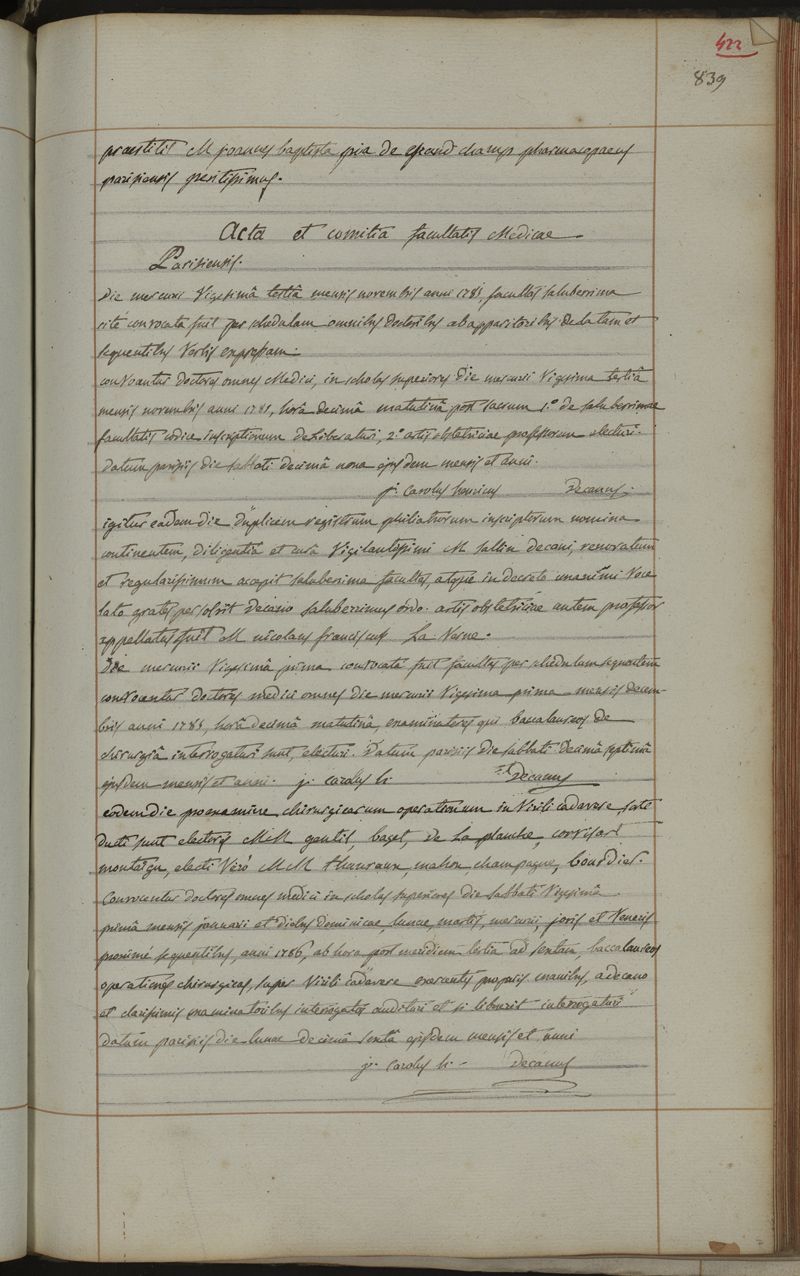 422
839
praestitit M joannes baptista pia de grand champ pharmacopaeus
parisiensis peritissimus.
Acta et comitia facultatis Medicae
Parisiensis.
Die mercurii Vigesimâ tertiâ mensis novembris anni 1785, facultas saluberrima
rité convocata fuit per schedulam omnibus doctoribus ab apparitoribus delatam et
sequentibus Verbis expressam.
convocantur doctores omnes Medici, in scholas superiores Die mercurii Vigesima tertiâ
mensis novembris anni 1785, horâ decimâ matutinâ post sacrum 1.° de saluberrimae
facultatis codice inscriptionum deliberaturi, 2.° artis obstetriciae professorum electuri.
datum parisiis die sabbati decimâ nona ejusdem mensis et anni.
j. carolus henricus Decanus.
igitur eadem die duplicem registrum philiatrorum inscriptorum nomina
continentem, diligentiâ et curâ Vigilantissimi M Sallin decani, renovatum
et regularissimum accepit saluberrima facultas, atque in decreto unanimi Voce
lato grates persolvit decano saluberrimus ordo. artis obstetriciae autem professor
appellatus fuit M nicolaus franciscus La Verne.
Die mercurii Vigesimâ prima convocata fuit facultas per schedulam sequentem
convocantur doctores medici omnes die mercurii Vigesima prima mensis decem-
bris anni 1785, horâ decimâ matutinâ, examinatores qui baccalaureos de
chirurgiâ interrogaturi sunt, electuri. Datum parisiis die sabbati decimâ septimâ
ejusdem mensis et anni. j. carolus h. Decanus
eodem die pro examine chirurgicarum operationum in Virili cadavere, sorte
ducti sunt electores MM gentil, baget, de La planche, corvisart
montaigu, electi Verò MM thauraux, mahon, champagne, bourdier.
Convocentur doctores omnes medici in scholas superiores die sabbati Vigesimâ
primâ mensis januarii et diebus dominicae, lunae, martis, mercurii, jovis et Veneris
proximé sequentibus, anni 1786, ab hora post meridiem tertiâ ad sextam, baccalaureos
operationes chirurgicas, super Virili cadavere exercentes propriis manibus, a decano
et clarissimis examinatoribus interrogatos audituri et si libuerit interrogaturi
datum parisiis die lunae decimâ sextâ ejusdem mensis et anni
j. carolus h. - Decanus